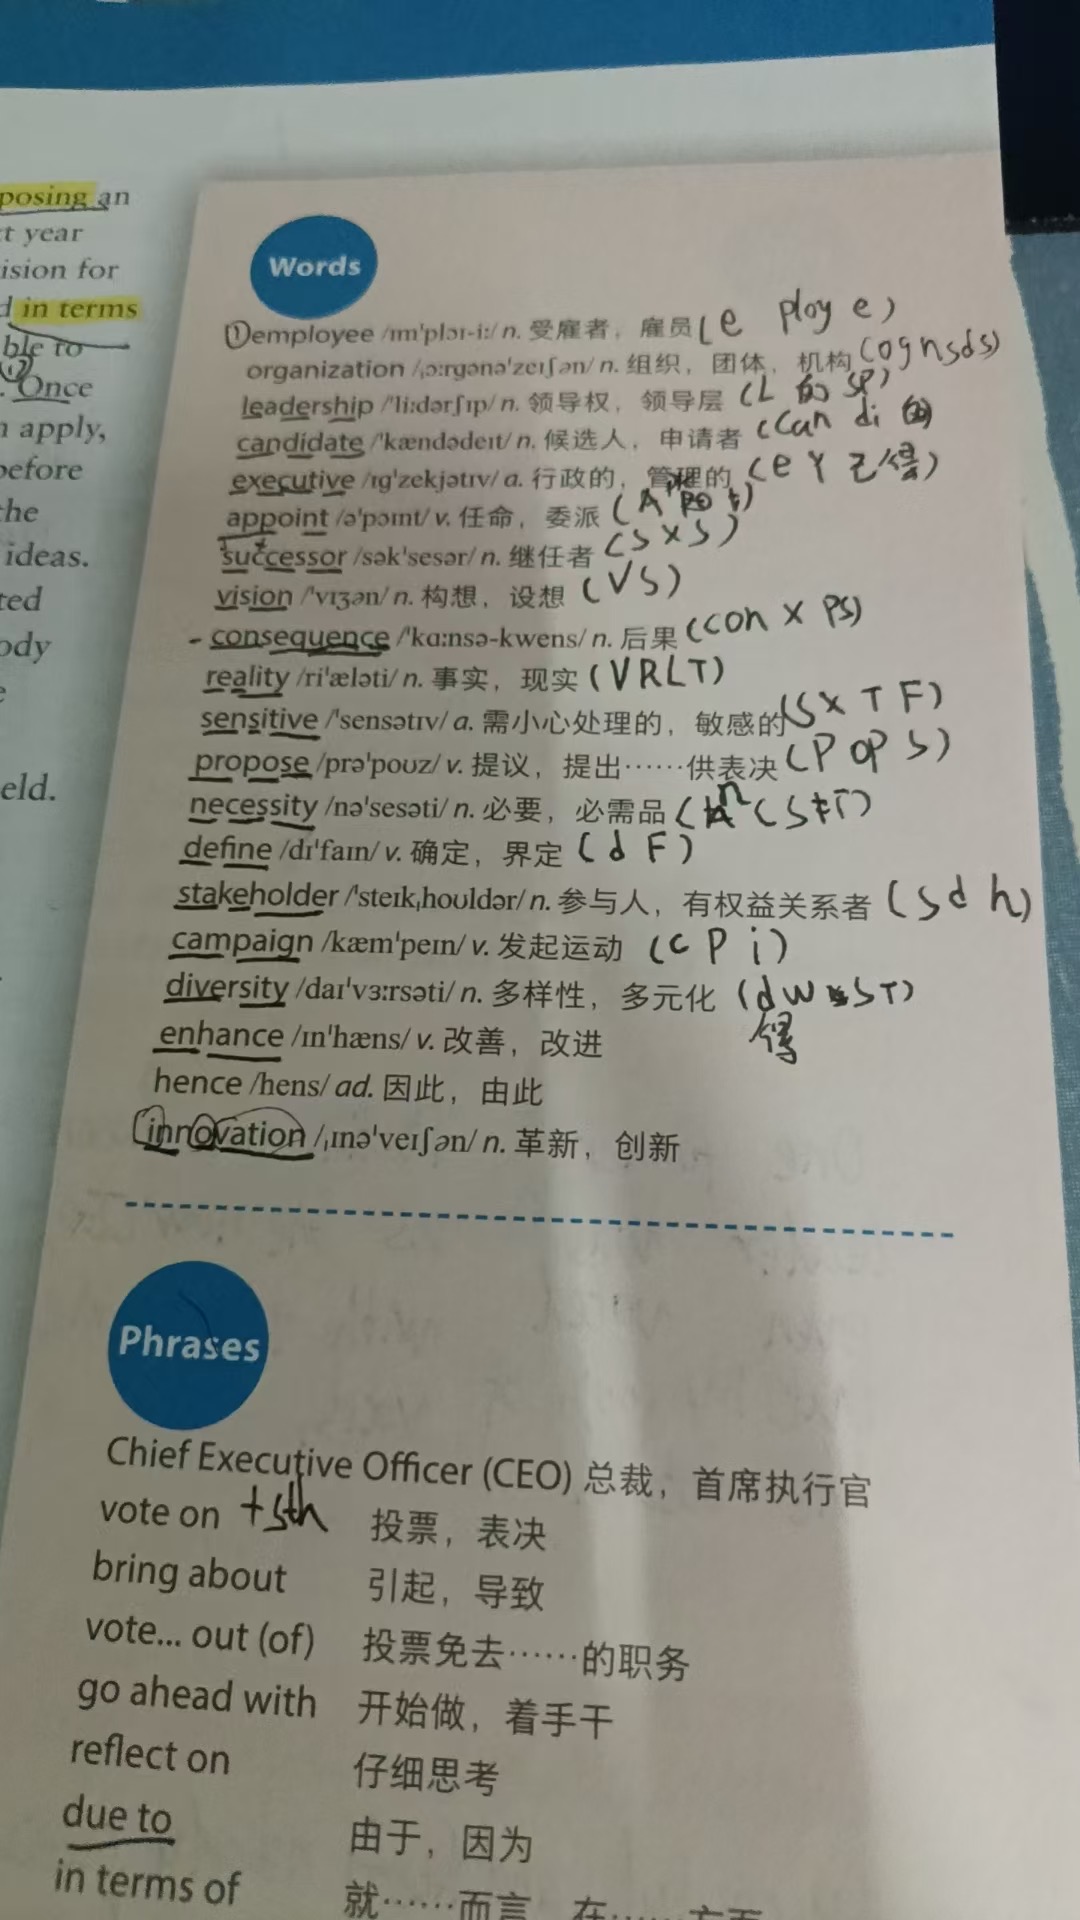 posing an
t year
ision for
d in terms
ble to
. Once
n apply,
before
the
ideas.
ted
ody
e
eld.
Words
①employee /ɪm'plɔɪ-iː/ n. 受雇者，雇员(e ploy e)
organization /ˌɔːrgənə'zeɪʃən/ n. 组织，团体，机构(ognsds)
leadership /'liːdərʃɪp/ n. 领导权，领导层 (L 的 SP)
candidate /'kændədeɪt/ n. 候选人，申请者 (can di
executive /ɪg'zekjətɪv/ a. 行政的，管理的 (e Y 乙得)
appoint /ə'pɔɪnt/ v. 任命，委派
successor /sək'sesər/ n. 继任者 (S X S)
vision /'vɪʒən/ n. 构想，设想 (VS)
- consequence /'kɑːnsə-kwens/ n. 后果 (con X PS)
reality /ri'æləti/ n. 事实，现实 (VRLT)
sensitive /'sensətɪv/ a. 需小心处理的，敏感的(SX T F)
propose /prə'poʊz/ v. 提议，提出……供表决 (P OP S)
necessity /nə'sesəti/ n. 必要，必需品
define /dɪ'faɪn/ v. 确定，界定 (d F)
stakeholder /'steɪkˌhoʊldər/ n. 参与人，有权益关系者 (S d h)
campaign /kæm'peɪn/ v. 发起运动 (C P i)
diversity /daɪ'vɜːrsəti/ n. 多样性，多元化 (dW ST)
得
enhance /ɪn'hæns/ v. 改善，改进
hence /hens/ ad. 因此，由此
innovation /ˌɪnə'veɪʃən/ n. 革新，创新
Phrases
Chief Executive Officer (CEO) 总裁，首席执行官
vote on +sth 投票，表决
bring about 引起，导致
vote... out (of) 投票免去……的职务
go ahead with 开始做，着手干
reflect on 仔细思考
due to 由于，因为
in terms of 就……而言，在……方面